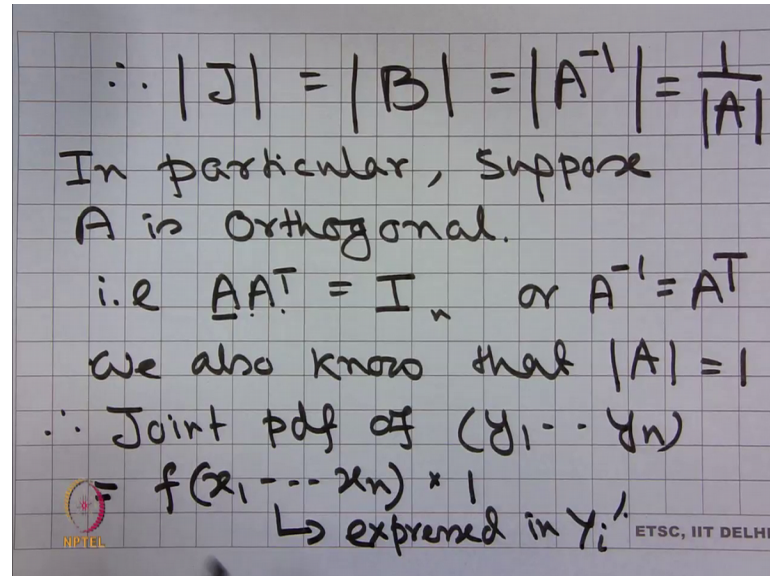 ∴ |J| = |B| = |A⁻¹| = 1/|A|
In particular, suppose
A is orthogonal.
i.e AAᵀ = Iₙ or A⁻¹ = Aᵀ
we also know that |A| = 1
∴ Joint pdf of (y₁ -- yₙ)
= f(x₁ --- xₙ) * 1
↳ expressed in yᵢ'
NPTEL
ETSC, IIT DELHI